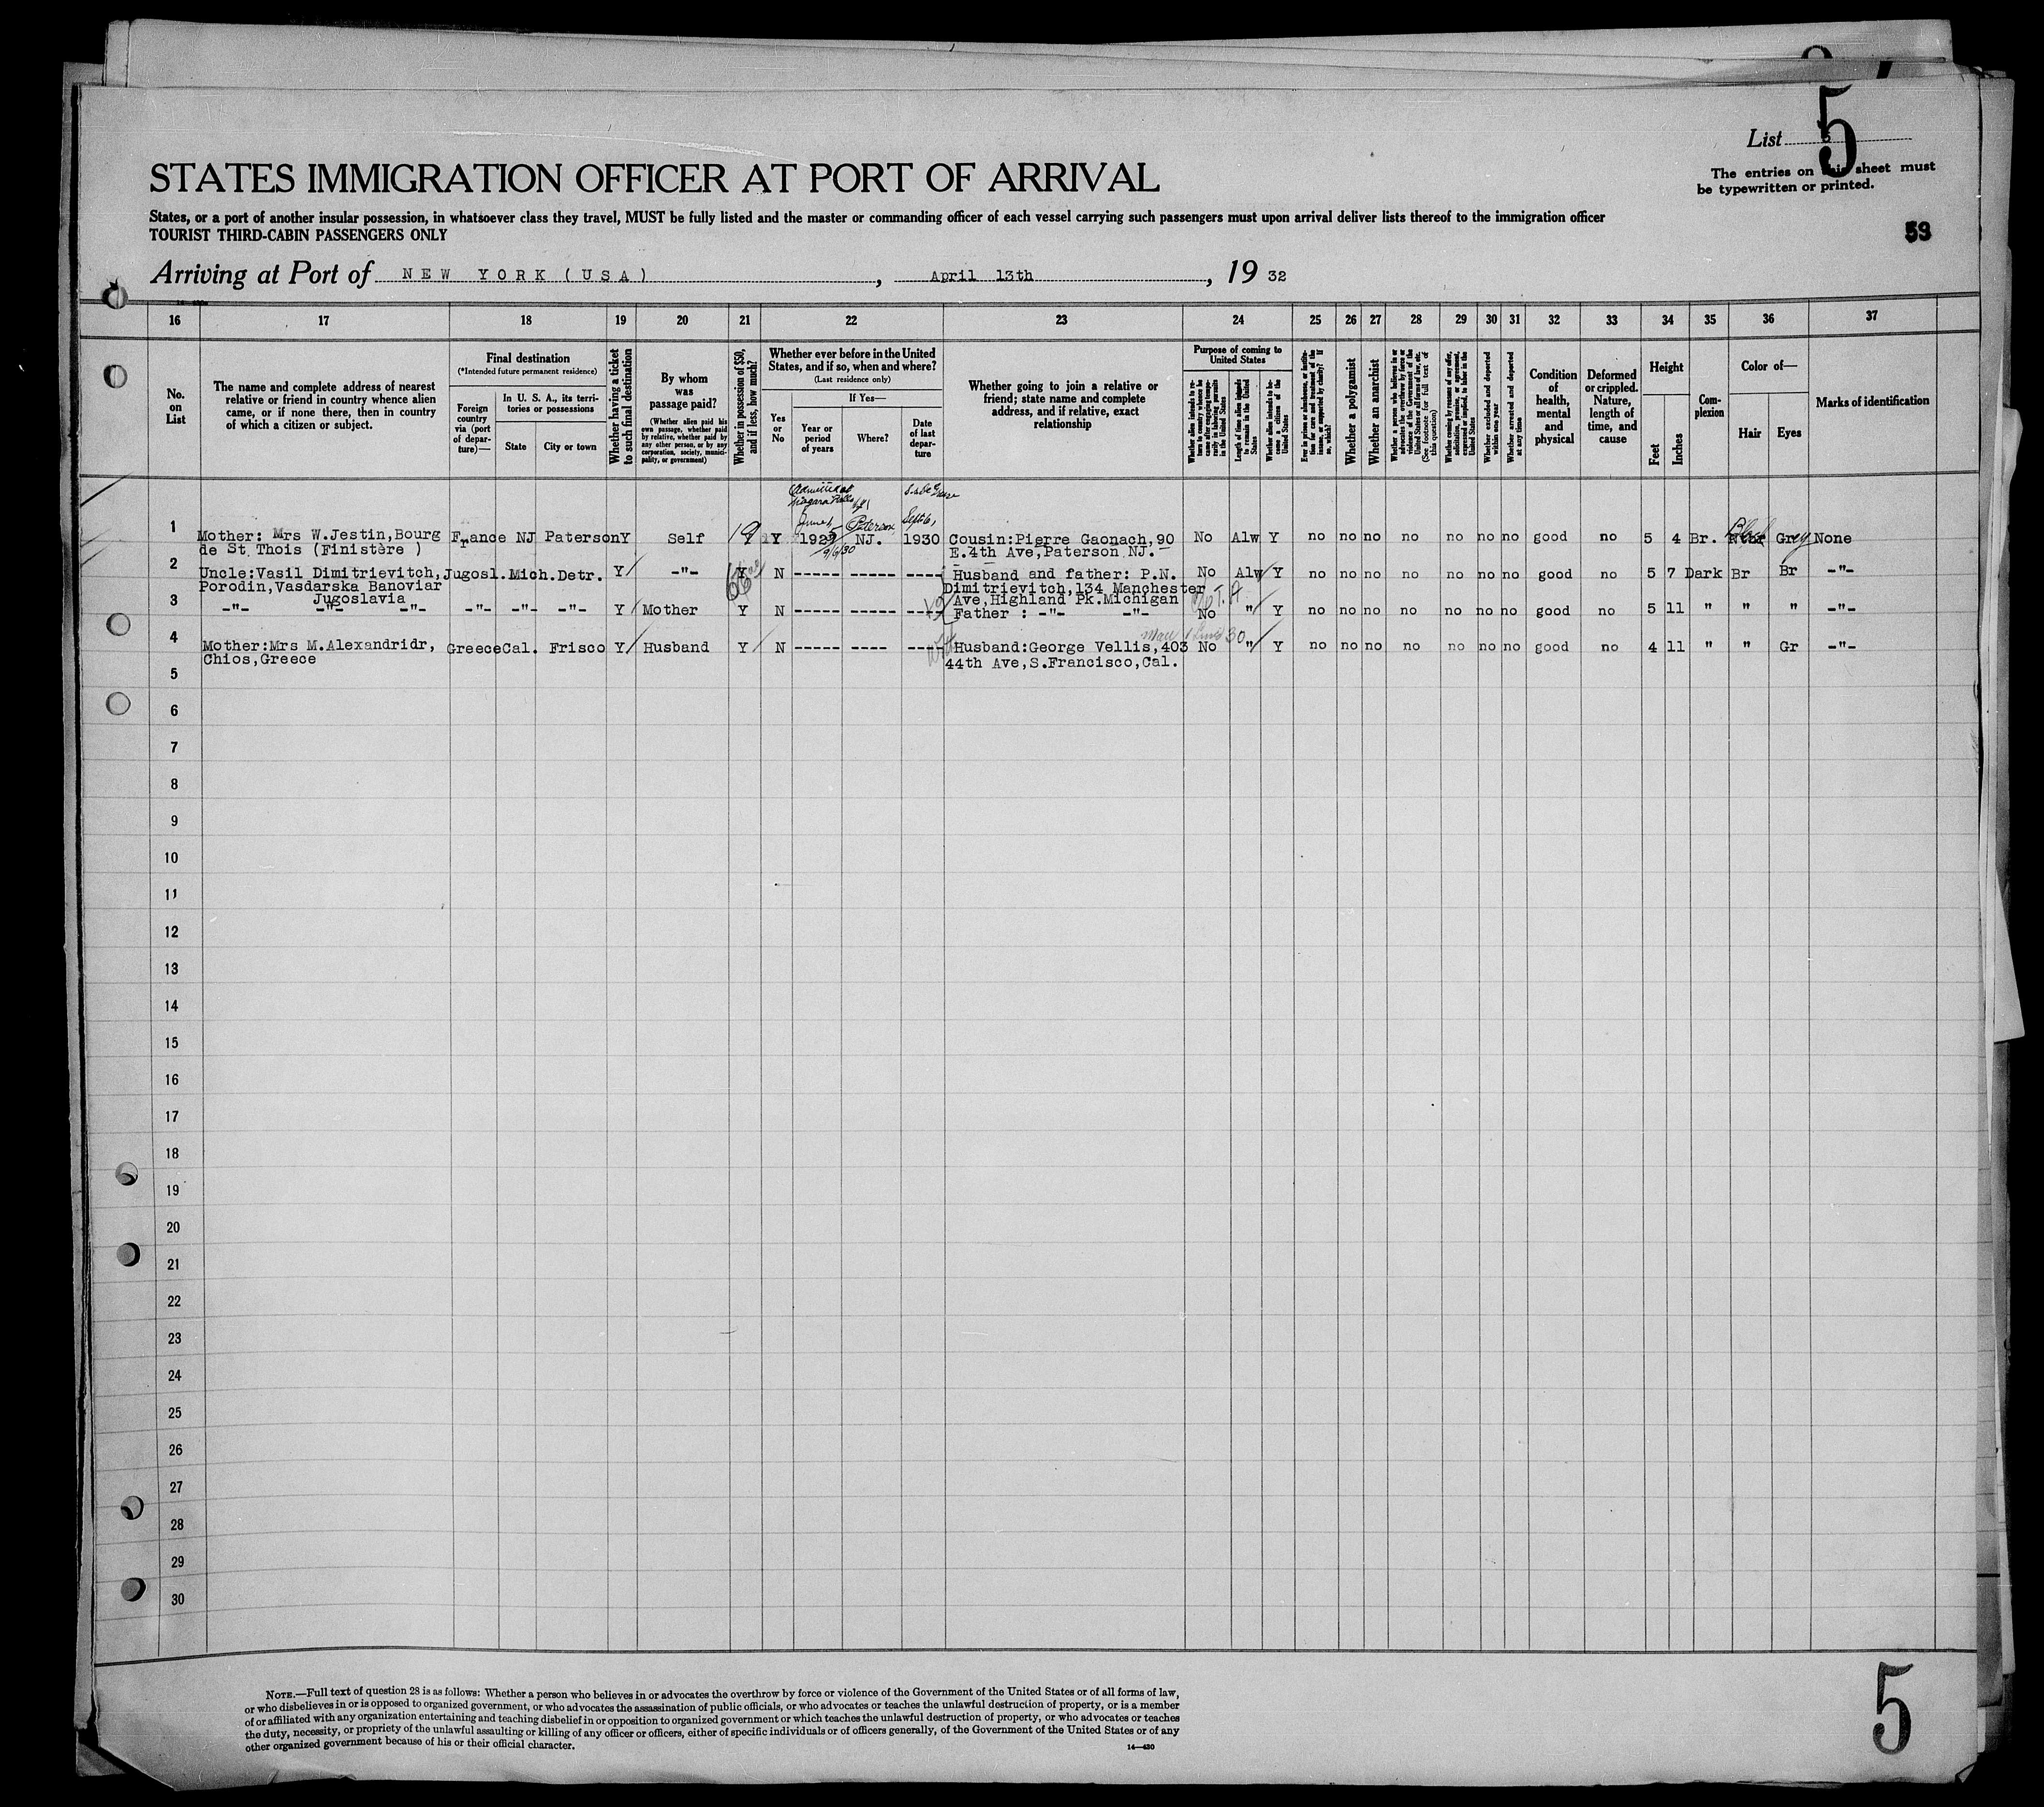 List 5
5
The entries on this sheet must
be typewritten or printed.
STATES IMMIGRATION OFFICER AT PORT OF ARRIVAL
States, or a port of another insular possession, in whatsoever class they travel, MUST be fully listed and the master or commanding officer of each vessel carrying such passengers must upon arrival deliver lists thereof to the immigration officer
TOURIST THIRD-CABIN PASSENGERS ONLY
Arriving at Port of NEW YORK (USA), April 13th, 19 32
16 17 18 19 20 21 22 23 24 25 26 27 28 29 30 31 32 33 34 35 36 37
No.
on
List
The name and complete address of nearest
relative or friend in country whence alien
came, or if none there, then in country
of which a citizen or subject.
Final destination
(*Intended future permanent residence)
Foreign
country
via (port
of depar-
ture)—
In U. S. A., its terri-
tories or possessions
State
City or town
Whether having a ticket
to such final destination
By whom
was
passage paid?
(Whether alien paid his
own passage, whether paid
by relative, whether paid by
any other person, or by any
corporation, society, munici-
pality, or government)
Whether in possession of $50,
and if less, how much?
Whether ever before in the United
States, and if so, when and where?
(Last residence only)
Yes
or
No
If Yes—
Year or
period
of years
Where?
Date
of last
depar-
ture
Whether going to join a relative or
friend; state name and complete
address, and if relative, exact
relationship
Purpose of coming to
United States
Whether alien intends to re-
turn to country whence he
came after engaging tempo-
rarily in laboring pursuits
in the United States
Length of time alien intends
to remain in the United
States
Whether alien intends to be-
come a citizen of the
United States
Ever in prison or almshouse, or institu-
tion for care and treatment of the
insane, or supported by charity? If
so, which?
Whether a polygamist
Whether an anarchist
Whether a person who believes in or
advocates the overthrow by force or
violence of the Government of the
United States or all forms of law, etc.
(See footnote for full text of
this question)
Whether coming by reason of any offer,
solicitation, promise, or agreement,
expressed or implied, to labor in the
United States
Whether excluded and deported
within one year
Whether arrested and deported
at any time
Condition
of
health,
mental
and
physical
Deformed
or crippled.
Nature,
length of
time, and
cause
Height
Feet
Inches
Com-
plexion
Color of—
Hair
Eyes
Marks of identification
Admitted at
Niagara Falls
June Paterson Sept 6,
1 Mother: Mrs W.Jestin,Bourg France NJ Paterson Y Self Y 1929 NJ. 1930 Cousin:Pierre Gaonach,90 No Alw Y no no no no no no no good no 5 4 Br. Black Grey None
de St Thois (Finistère ) 9/6/30 E.4th Ave,Paterson NJ.
2 Uncle:Vasil Dimitrievitch, Jugosl. Mich. Detr. Y -"- Y N ----- ----- ---- Husband and father: P.N. No Alw Y no no no no no no no good no 5 7 Dark Br Br -"-
Porodin,Vasdarska Banoviar Dimitrievitch,134 Manchester
Jugoslavia Ave,Highland Pk.Michigan
3 -"- -"- -"- -"- -"- -"- Y Mother Y N ----- ----- ---- Father : -"- -"- No " Y no no no no no no no good no 5 11 " " " -"-
4 Mother:Mrs M.Alexandridr, Greece Cal. Frisco Y Husband Y N ----- ---- ---- Husband:George Vellis,403 No " Y no no no no no no no good no 4 11 " " Gr -"-
Chios,Greece 44th Ave,S.Francisco,Cal.
5
6
7
8
9
10
11
12
13
14
15
16
17
18
19
20
21
22
23
24
25
26
27
28
29
30
NOTE.—Full text of question 28 is as follows: Whether a person who believes in or advocates the overthrow by force or violence of the Government of the United States or of all forms of law,
or who disbelieves in or is opposed to organized government, or who advocates the assassination of public officials, or who advocates or teaches the unlawful destruction of property, or is a member
of or affiliated with any organization entertaining and teaching disbelief in or opposition to organized government or which teaches the unlawful destruction of property, or who advocates or teaches
the duty, necessity, or propriety of the unlawful assaulting or killing of any officer or officers, either of specific individuals or of officers generally, of the Government of the United States or of any
other organized government because of his or their official character.
14—430
5